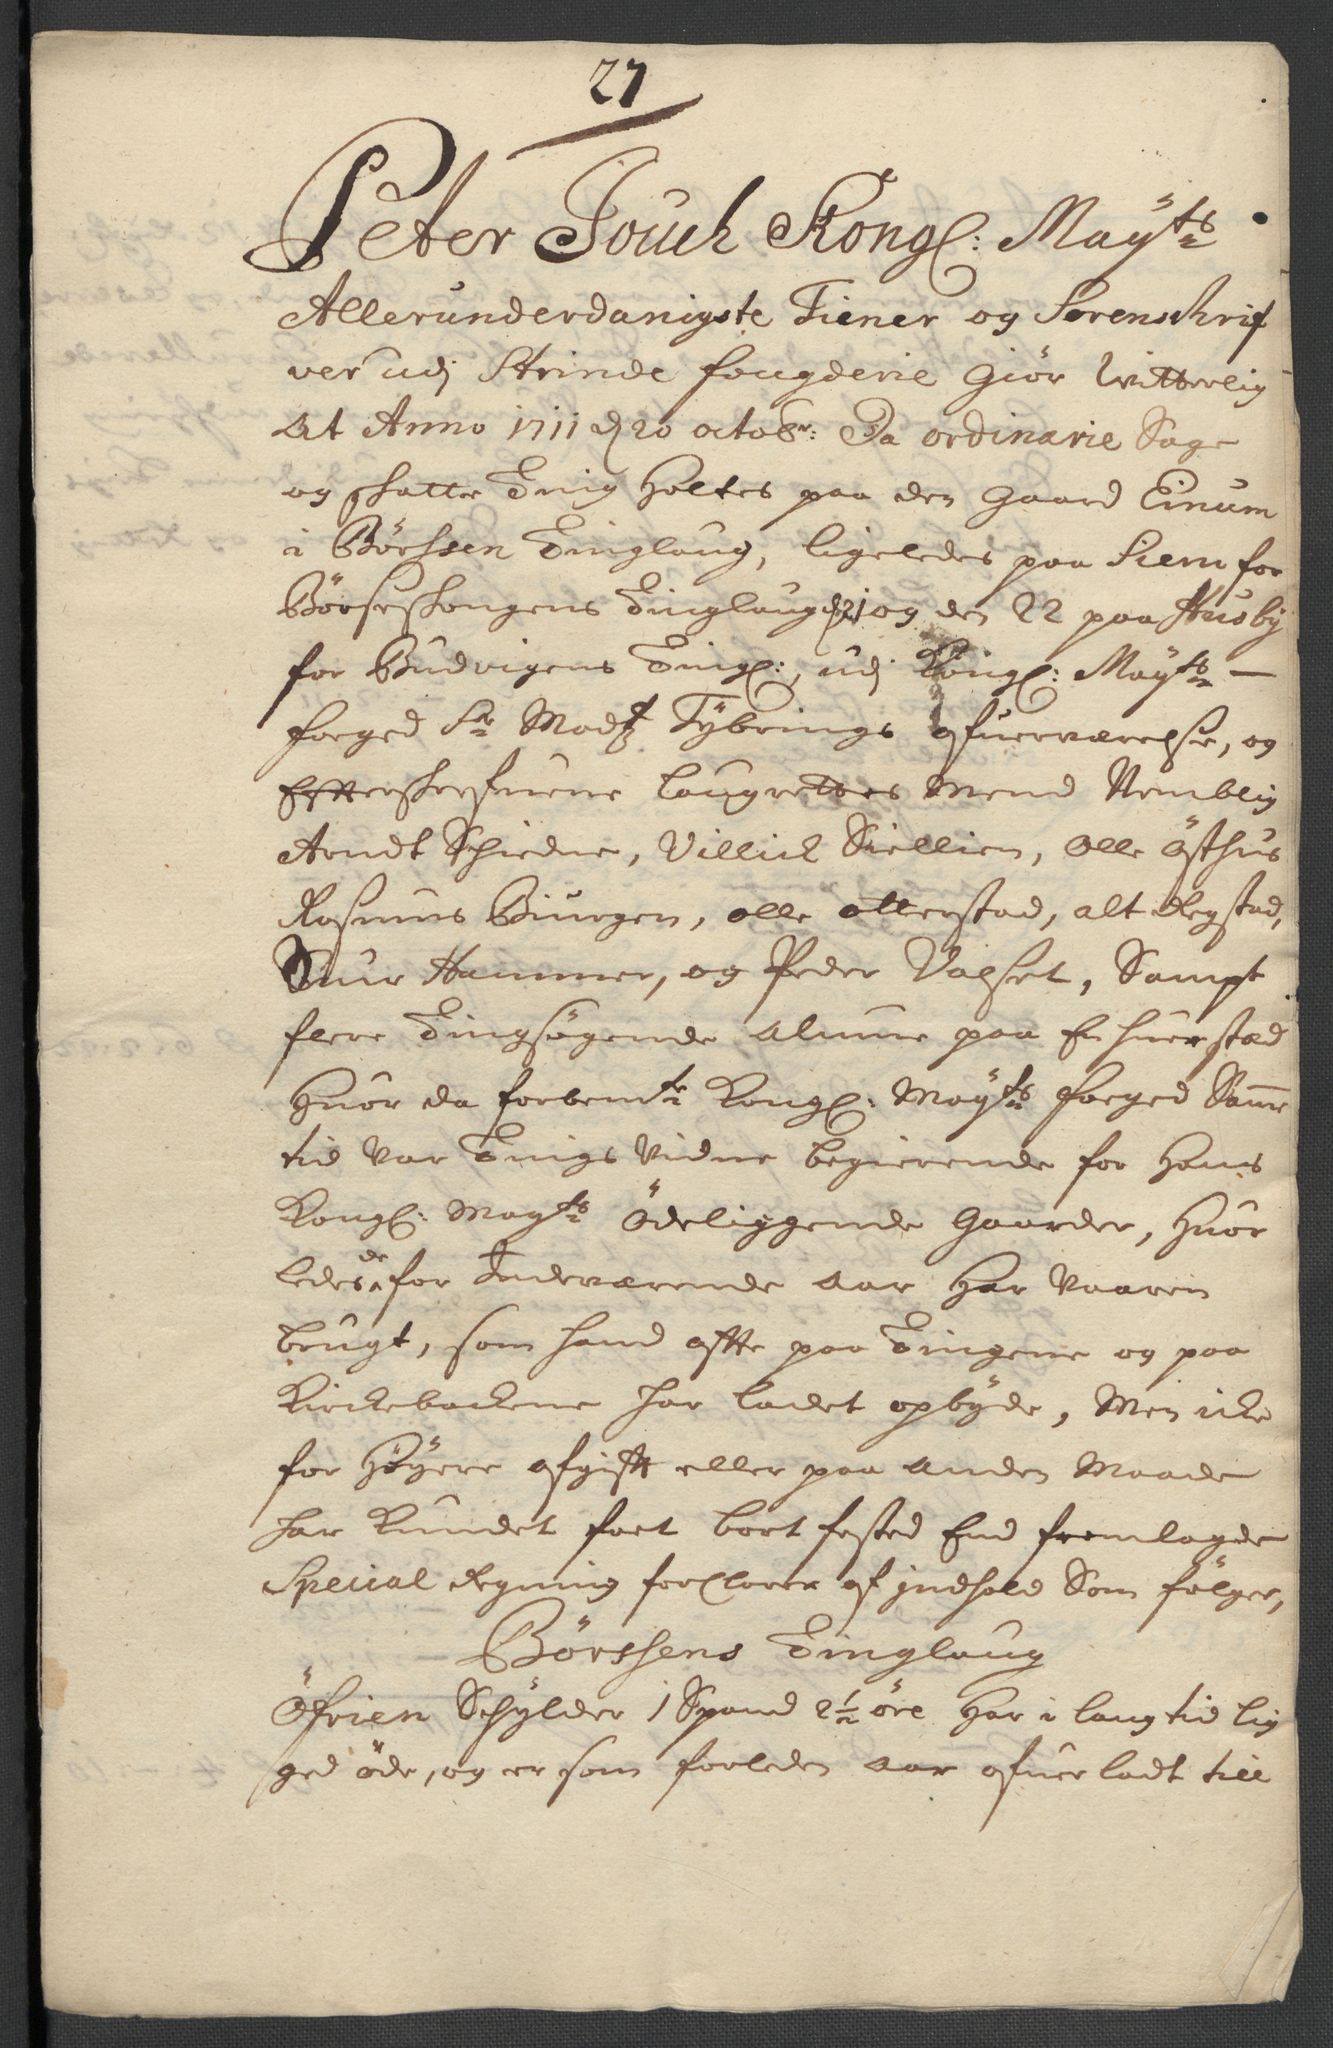 27
Peter Jouch Kongl: Maÿts
Allerunderdanigste Tiener og Sorenschrif
ver udj Strinde fougderie Giör Witterlig
At Anno 1711 d 20 octobr: Da ordinarie Sage
og schatte Ting Holtes paa den Gaard Einum
i Börssen Tinglaug, ligeledes paa Siem for
Börseschongens Tinglaug d 21 og den 22 paa Husbÿ
for Budvigens Tingl:, udj Kongl: Maÿts
foged Sr Madtz Tÿbrings ofuerværelse, og
Effterschrefuene Laugrettes Mend Nemblig
Arndt Schiedne, Villich Siellien, Olle Östhus
Rasmus Biurgen, olle ollerstad, alt Regstad,
Siur Hammer, og Peder Valset, Sampt
flere Tingsögende Almue paa En huer stad
Huor da forbemte Kongl: Maÿts foged Same
tid var Tings Vidne begierende for Hans
Kongl: Mayts Ödeliggende Gaarder, Huor
ledes de for Indeværende aar Har Vaaren
brugt, som hand offte paa Tingene og paa
Kirckebackene har ladet opbÿde, Men icke
for Höÿere afgifft eller paa anden Maade
har Kundet faet bort fested End fremlagde
Special Regning forclarer af jndhold Som fölger,
Börshens Tinglaug
Öfrien Schÿlder 1 Spand 2½ öre Har i lang tid lig
ged öde, og er som forleden aar ofuerladt till